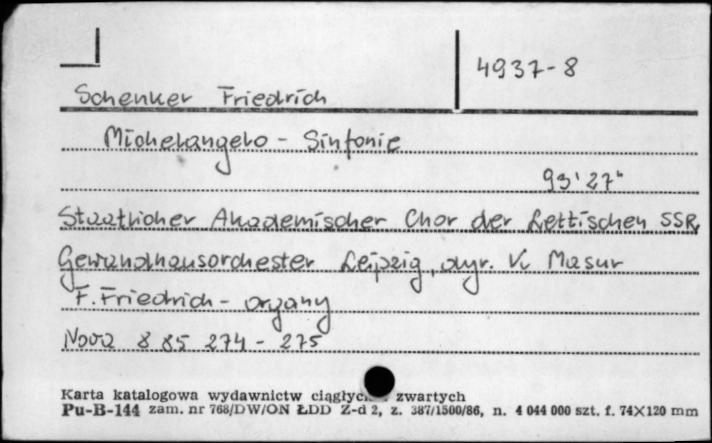 4937-8
Schenker Friedrich
Michelangelo - Sinfonie
93'27"
Staatlicher Akademischer Chor der Lettischen SSR,
Gewandhausorchester Leipzig, dyr. K. Masur
F. Friedrich - organy
Nova 8 85 274 - 275
Karta katalogowa wydawnictw ciągłyc zwartych
Pu-B-144 zam. nr 768/DW/ON ŁDD Z-d 2, z. 387/1500/86, n. 4 044 000 szt. f. 74×120 mm